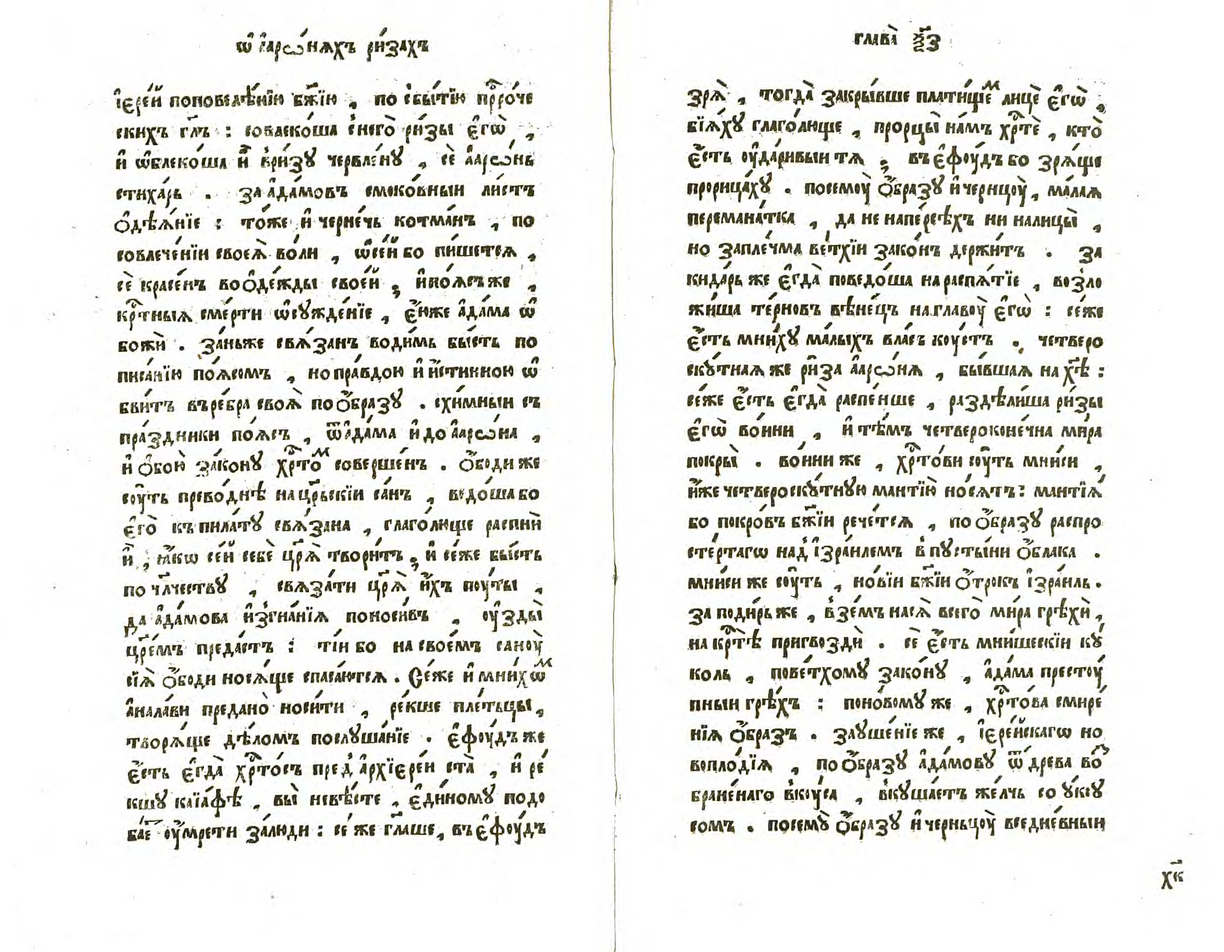 ѿ а҆арѡ́нѧхъ ри́захъ
і҆ере́й поповелѣ́нїю бж҃їю , по събы́тїю прⷪ҇рче
скихъ гл҃ъ : совлеко́ша с̾него̀ ри́зы є҆гѡ̀ ,
и҆ ѡ҆блеко́ша и҆̀ в̾ри́зу червле́ну , се а҆арѡ́нь
стиха́рь . за а҆да́мовъ смоко́вныи ли́стъ
ѻ҆дѣѧ́нїе : то́же и҆ черне́чь котма́нъ , по
совлече́нїи своеѧ̀ во́ли , ѡ҆се́й бо пи́шетсѧ ,
сѐ красе́нъ воѻ҆де́жды свое́й ; и҆по́ѧсъже ,
крⷭ҇тныѧ сме́рти ѡ҆сужде́нїе , є҆́йже а҆да́ма ѡ҆
божѝ . За́ньже свѧ́занъ води́мь бы́сть по
писа́нїю по́ѧсомъ , но пра́вдою и҆ и҆́стинною ѡ҆
бви́тъ въре́бра своѧ̀ поѻ҆́бразу . схи́мныи съ
пра́здники по́ѧсъ , ѿа҆да́ма и҆ до а҆арѡ́на ,
и҆ ѻ҆бою̀ зако́ну хрⷭ҇то́мъ соверше́нъ . Ѻ҆́боди же
сꙋ́ть прево́днѣ нацрⷭ҇ьскїи са́нъ , ведо́ша бо
є҆го̀ къпила́ту свѧ́зана , глаго́люще распнѝ
и҆̀ , ꙗ҆́кѡ се́й себѐ црѧ҃̀ твори́тъ ; и҆ се́же бы́сть
по чл҃честву , свѧза́ти црѧ҃̀ и҆́хъ пꙋ́ты ,
да а҆да́мова и҆згна́нїѧ поноси́въ , ᲂу҆зды̀
цре҃́мъ преда́стъ : ті́и бо на свое́мъ санꙋ̀
сїѧ̀ ѻ҆́боди носѧ́ще спаса́ютсѧ . Се́же и҆ мни́хѡмъ
а҆нала́ви предано̀ носи́ти , ре́кше плетцы̀ ,
творѧ́ще дѣ́ломъ послуша́нїе . Є҆фꙋ́дъ же
є҆́сть є҆гда̀ хрⷭ҇то́съ пред̾ а҆рхїере́и ста̀ , и҆ ре́
кшу каїа́фѣ , вы̀ невѣ́сте , є҆ди́ному подо
ба́етъ ᲂу҆мре́ти за́люди : се́ же гл҃аше , въ є҆фꙋ́дъ
глава̀ х҃з
зрѧ̀ , тогда̀ закры́вше плати́щемъ лицѐ є҆гѡ̀ ,
бїѧ́ху глаго́люще , прорцы̀ на́мъ хрⷭ҇тѐ , кто̀
є҆́сть ᲂу҆да́ривыи тѧ ; въ є҆фꙋ́дъ бо зрѧ́ще
прорица́ху . посемꙋ̀ ѻ҆́бразу и҆ чернцꙋ̀ , ма́лаѧ
перемана́тка , да не напе́рсѣхъ ни налицы̀ ,
но запле́чма ве́тхїи зако́нъ де́ржитъ . за
кида́рь же є҆гда̀ поведо́ша на распѧ́тїе , возло
жи́ша те́рновъ вѣне́цъ на главꙋ̀ є҆гѡ̀ : се́же
є҆́сть мни́ху ма́лыхъ вла́съ кꙋ́стъ . четверо
ску́тнаѧ же ри́за а҆арѡ́нѧ , бы́вшаѧ на хⷭ҇ѣ :
се́же є҆́сть є҆гда̀ распе́нше , раздѣли́ша ри́зы
є҆гѡ̀ во́ини , и҆ тѣ́мъ четвероконе́чна ми́ра
покры̀ . во́ини же , хрⷭ҇то́ви сꙋ́ть мни́си ,
и҆́же четвероску́тную ма́нтїю но́сѧтъ : манті́ѧ
бо покро́въ бж҃їи рече́тсѧ , по ѻ҆́бразу распро
сте́ртагѡ над̾ і҆зра́илемъ в̾пусты́ни ѻ҆́блака .
мни́си же сꙋ́ть , но́вїи бж҃їи ѻ҆́трокъ і҆зра́иль .
за поди́рь же , в̾зе́мъ на сѧ̀ всего̀ ми́ра грѣхѝ ,
на крⷭ҇тѣ̀ пригвоздѝ . сѐ є҆́сть мни́шескїи ку́
коль , пове́тхому зако́ну , а҆да́ма престꙋ́
пныи грѣ́хъ : поно́вому же , хрⷭ҇то́ва смире́
нїѧ ѻ҆́бразъ . заꙋше́нїе же , і҆ере́йскагѡ но
вопло́дїѧ , по ѻ҆́бразу а҆да́мову ѿ дре́ва воз
бране́наго в̾кꙋ́са , вкуша́етъ же́лчь со ᲂу҆́кꙋ
сомъ . посему̀ ѻ҆́бразу и҆ черньцꙋ̀ вседне́вныи
хк҃